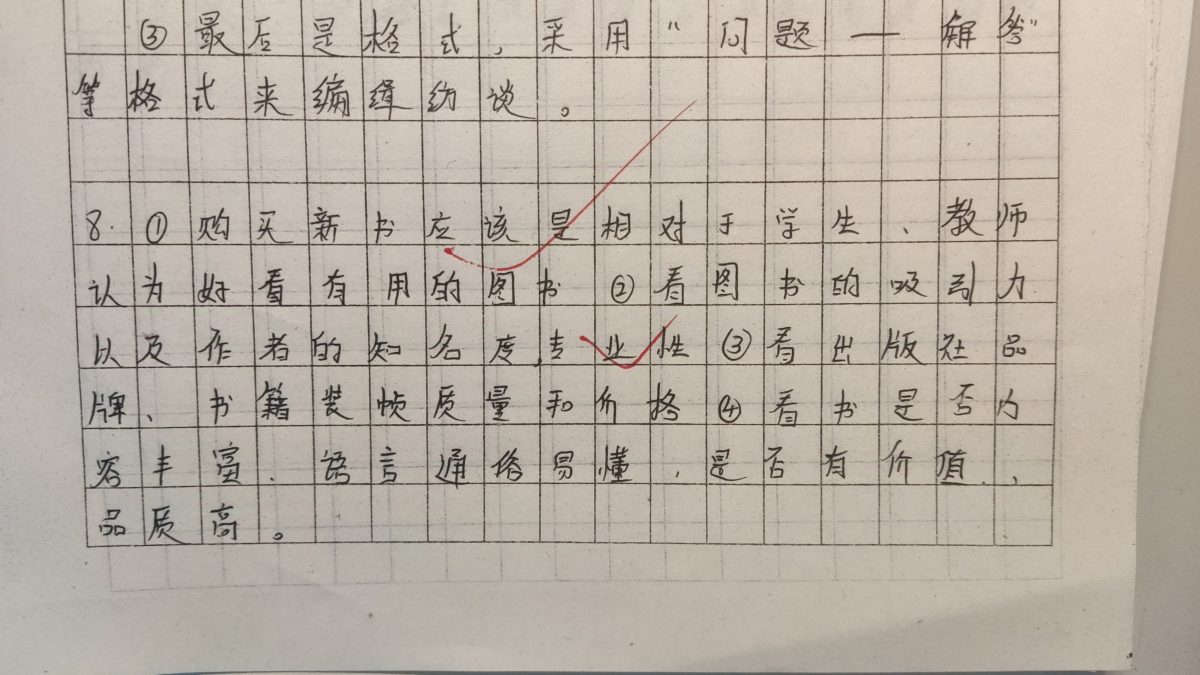 ③最后是格式，采用“问题——解答”
等格式来编缉纺谈。
8.①购买新书应该是相对于学生、教师
认为好看有用的图书②看图书的吸引力
以及作者的知名度,专业性③看出版社品
牌、书籍装帧质量和价格④看书是否内
容丰富、语言通俗易懂，是否有价值、
品质高。